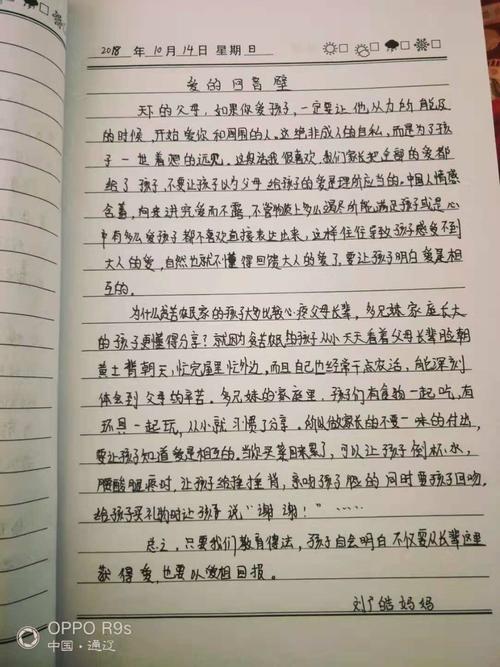 2018 年 10 月 14 日 星 期 日
爱 的 回 音 壁
天下 的 父母，如果你爱孩子，一定要让他从力所能及
的时候，开始爱你和周围的人。这绝非成人的自私，而是为了孩
子一世着想的远见。这段话我很喜欢，我们家长把全部的爱都
给了孩子，不要让孩子以为父母给孩子的爱是理所应当的。中国人情感
含蓄，向来讲究爱而不露，不管物质上多么竭尽所能满足孩子或是心
中有多么爱孩子都不喜欢直接表达出来，这样往往导致孩子感受不到
大人的爱，自然也就不懂得回馈大人的爱了，要让孩子明白爱是相
互的。
为什么贫苦农民家的孩子大多比较心疼父母长辈，多兄妹家庭长大
的孩子更懂得分享？就因为贫苦农民的孩子从小天天看着父母长辈脸朝
黄土背朝天，忙完屋里忙外边，而且自己也经常干点农活，能深刻
体会到父母的辛苦。多兄妹的家庭里，孩子们有食物一起吃，有
玩具一起玩，从小就习惯了分享。所以做家长的不要一味的付出，
要让孩子知道爱是相互的。当你买菜回来累了，可以让孩子倒杯水，
腰酸腿疼时，让孩子给捶捶背，亲吻孩子脸的同时要孩子回吻。
给孩子买礼物时让孩子说“谢谢！”……
总之，只要我们教育得法，孩子自会明白不仅要从长辈这里
获得爱，也要以爱相回报。
刘广皓妈妈
OPPO R9s
中国·通辽